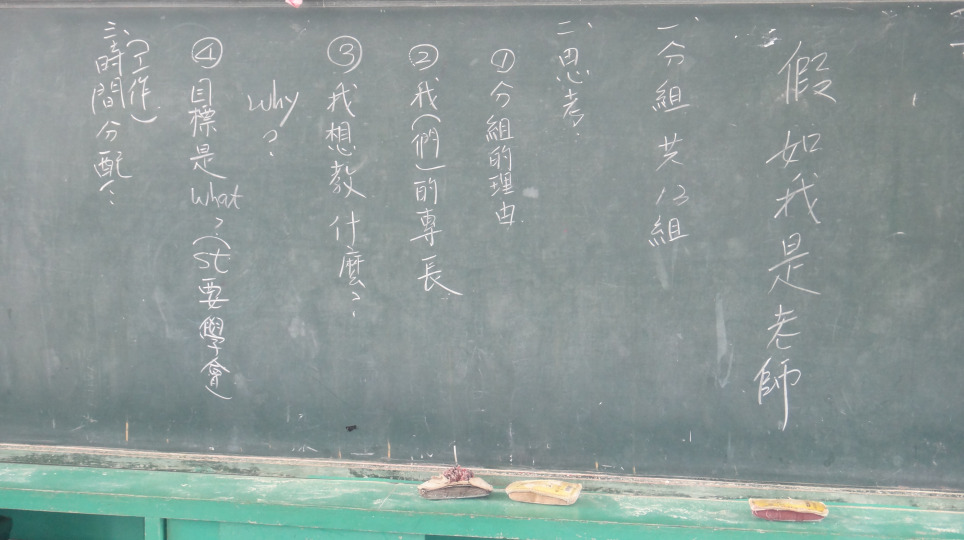 假如我是老師
一、分組 共13組
二、思考:
①分組的理由
②我(們)的專長
③我想教什麼?
why?
④目標是what?(st要學會)
(工作)
三、時間分配: